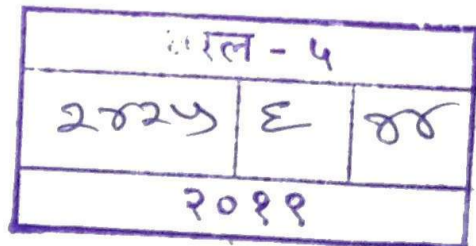 रल - ५
२४२५ ६ ४४
२०११